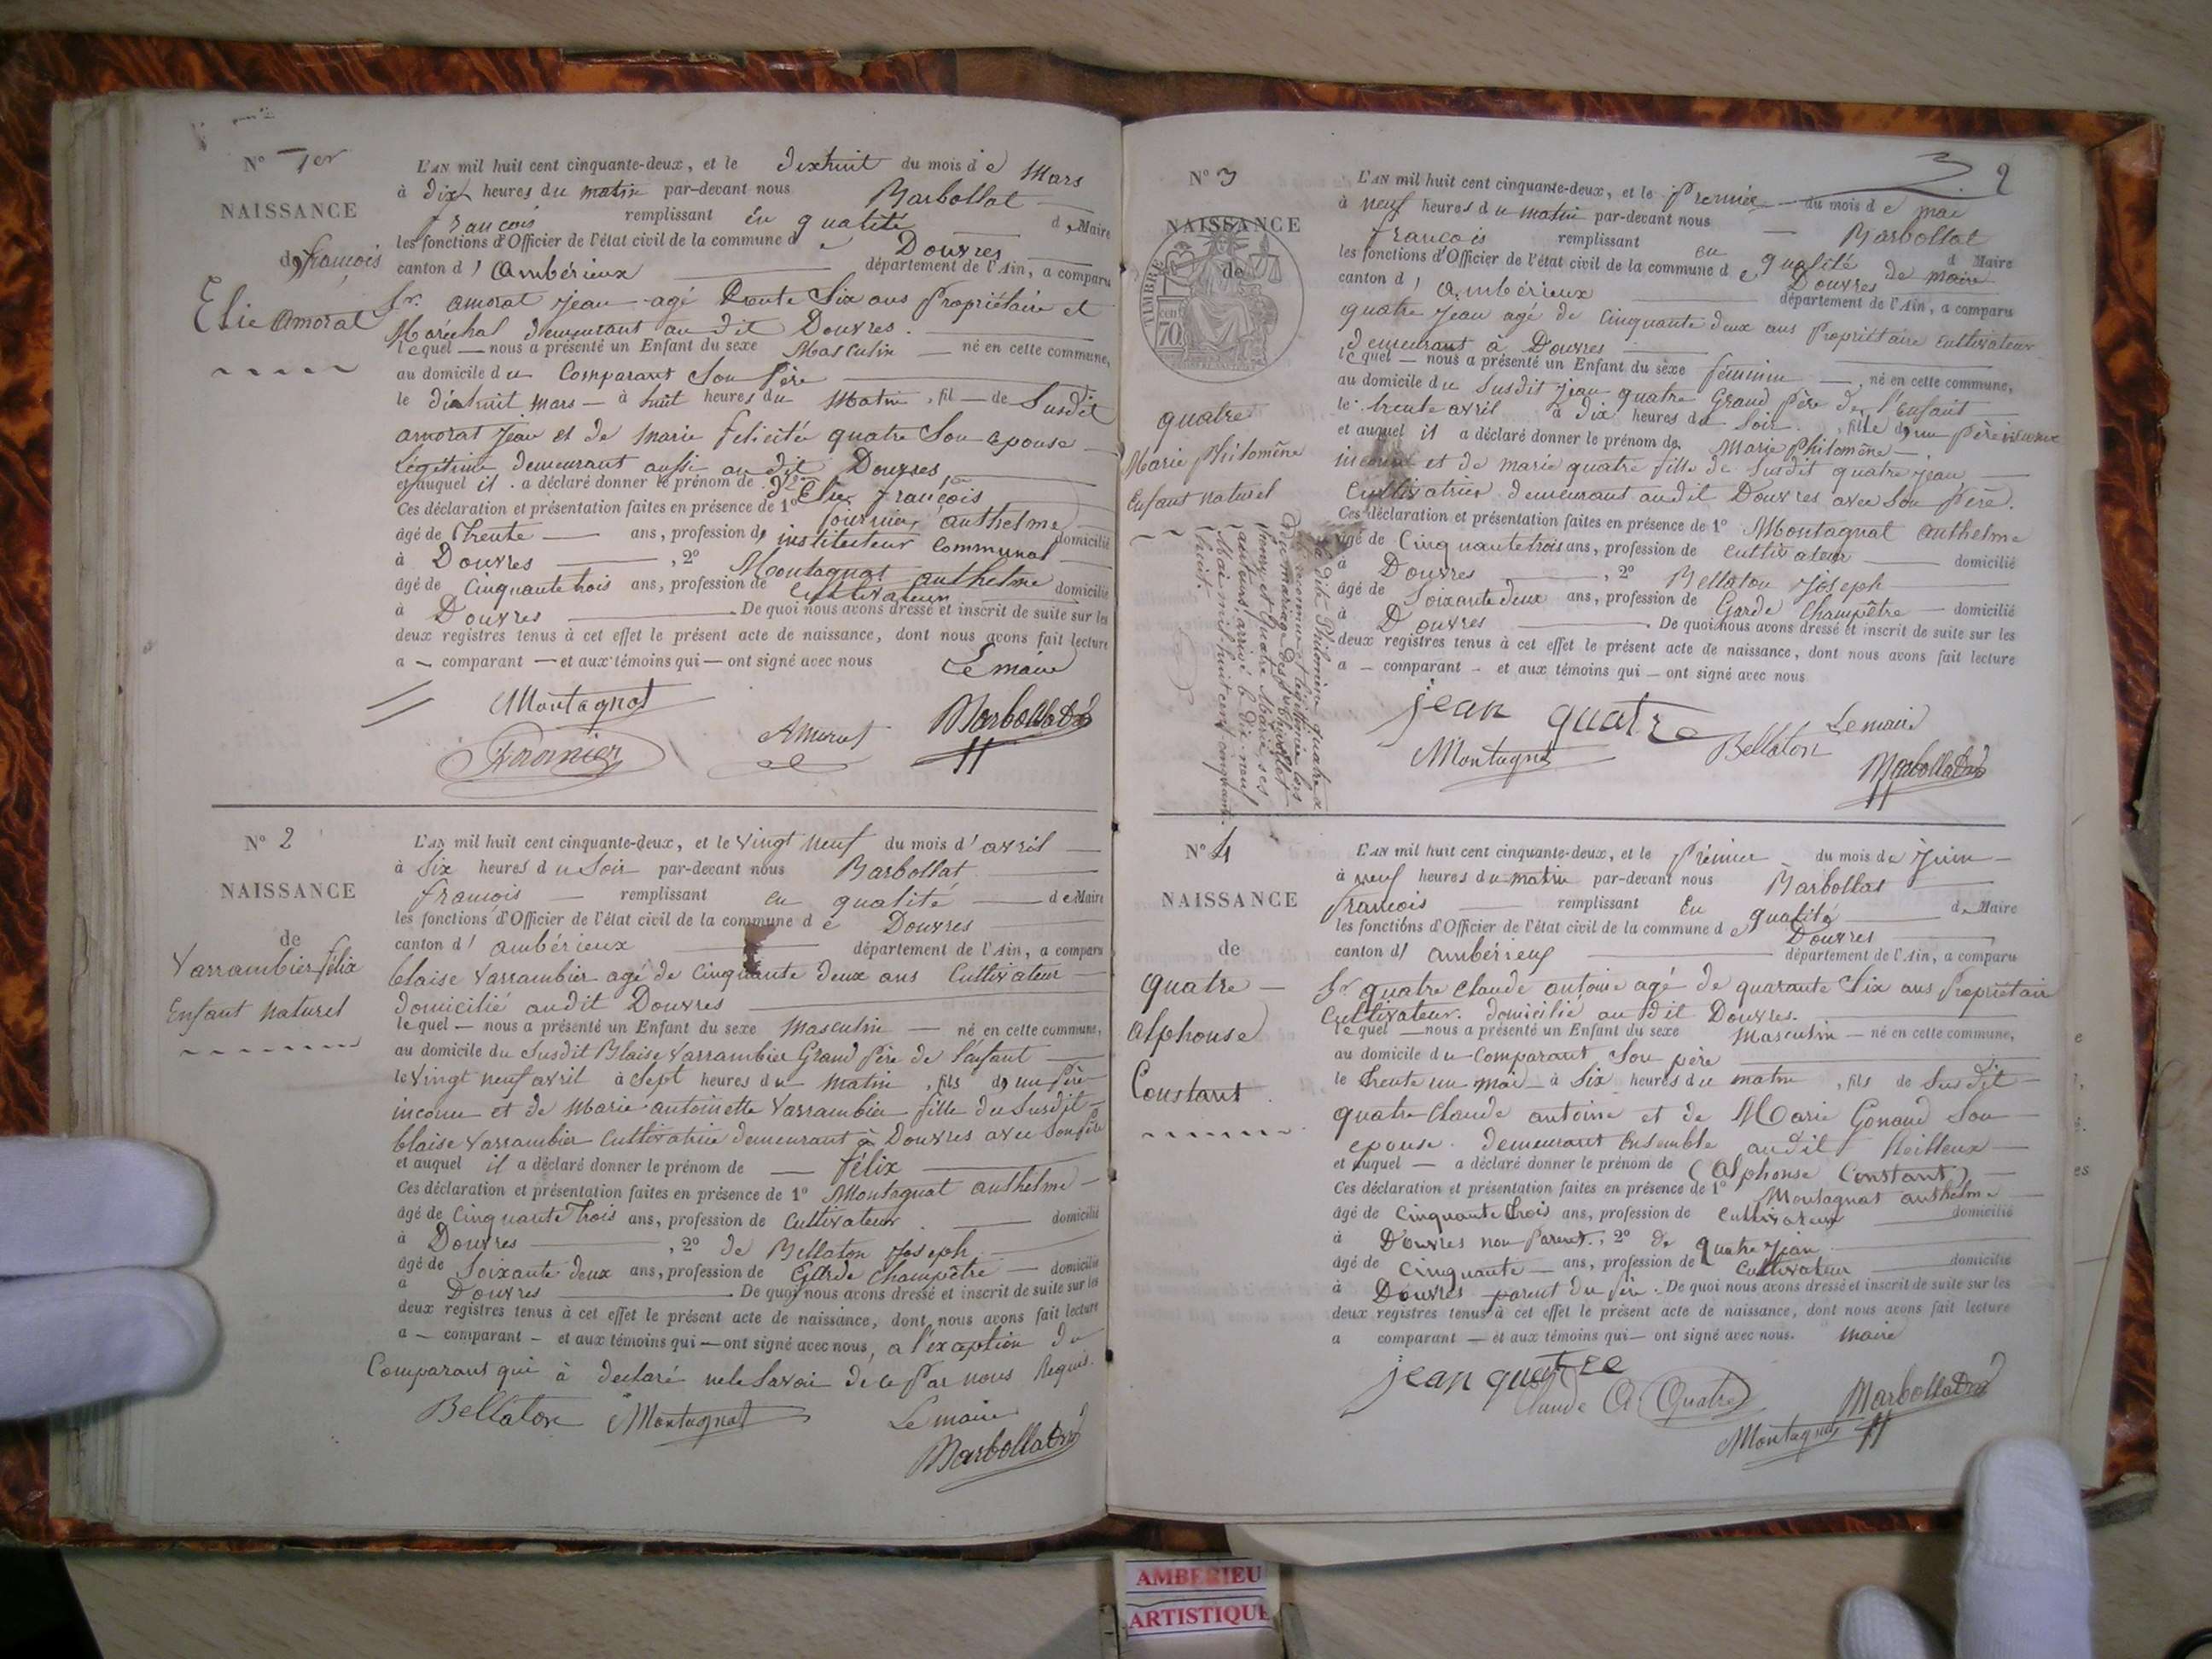 N° 1er
NAISSANCE
de françois
Elie Amorat
L'AN mil huit cent cinquante-deux, et le dixhuit du mois de Mars
à dix heures du matin par-devant nous Barbollat
françois remplissant en qualité de Maire
les fonctions d'Officier de l'état civil de la commune de Douvres
canton d'Ambérieux département de l'Ain, a comparu
Sr. amorat jean agé trente Six ans Propriétaire et
Marechal demeurant au dit Douvres.
lequel nous a présenté un Enfant du sexe Masculin né en cette commune,
au domicile du Comparant Son Père
le dixhuit mars à huit heures du Matin, fil de Susdit
amorat Jean et de Marie felicité quatre Son epouse
Légitime demeurant aussi au dit Douvres
et auquel il a déclaré donner le prénom de Elie françois
Ces déclaration et présentation faites en présence de 1° fournier anthelme
âgé de trente ans, profession d'instituteur Communal domicilié
à Douvres, 2° Montagnat anthelme
âgé de Cinquante trois ans, profession de Cultivateur domicilié
à Douvres De quoi nous avons dressé et inscrit de suite sur les
deux registres tenus à cet effet le présent acte de naissance, dont nous avons fait lecture
a comparant et aux témoins qui ont signé avec nous Le maire
Montagnat
Amorat
Barbollat
N° 2
NAISSANCE
de
Varrambier félix
Enfant naturel
L'AN mil huit cent cinquante-deux, et le vingt neuf du mois d'avril
à Six heures du Soir par-devant nous Barbollat
françois remplissant en qualité de Maire
les fonctions d'Officier de l'état civil de la commune de Douvres
canton d'ambérieux département de l'Ain, a comparu
blaise Varrambier agé de Cinquante deux ans Cultivateur
domicilié audit Douvres
lequel nous a présenté un Enfant du sexe Masculin né en cette commune,
au domicile du Susdit Blaise Varrambier Grand Père de l'enfant
le Vingt neuf avril à Sept heures du matin, fils d'un Père
inconu et de Marie antoinette Varrambier fille du Susdit
blaise Varrambier Cultivatrice demeurant à Douvres avec Son père
et auquel il a déclaré donner le prénom de félix
Ces déclaration et présentation faites en présence de 1° Montagnat anthelme
âgé de Cinquante trois ans, profession de Cultivateur domicilié
à Douvres, 2° de Bellaton Joseph
âgé de Soixante deux ans, profession de Garde Champêtre domicilié
à Douvres De quoi nous avons dressé et inscrit de suite sur les
deux registres tenus à cet effet le présent acte de naissance, dont nous avons fait lecture
a comparant et aux témoins qui ont signé avec nous, a l'exception du
Comparant qui à declaré ne le Savoir de ce Par nous Requis.
Bellaton Montagnat Le maire
Barbollat
2
N° 3
NAISSANCE
de
TIMBRE
70
quatre
Marie Philomène
Enfant naturel
L'AN mil huit cent cinquante-deux, et le Premier du mois de mai
à neuf heures du matin par-devant nous Barbollat
françois remplissant en qualité de maire d Maire
les fonctions d'Officier de l'état civil de la commune de Douvres
canton d'ambérieux département de l'Ain, a comparu
quatre Jean agé de Cinquante deux ans Propriétaire Cultivateur
demeurant à Douvres
lequel nous a présenté un Enfant du sexe féminin, né en cette commune,
au domicile du Susdit Jean quatre Grand Père de l'enfant
le trente avril à dix heures du Soir, fille d'un Père inconnu
et auquel il a déclaré donner le prénom de Marie Philomène
et de marie quatre fille de Susdit quatre jean
Cultivatrice demeurant audit Douvres avec Son Père.
Ces déclaration et présentation faites en présence de 1° Montagnat anthelme
âgé de Cinquante trois ans, profession de Cultivateur domicilié
à Douvres, 2° Bellaton Joseph
âgé de Soixante deux ans, profession de Garde Champêtre domicilié
à Douvres De quoi nous avons dressé et inscrit de suite sur les
deux registres tenus à cet effet le présent acte de naissance, dont nous avons fait lecture
a comparant et aux témoins qui ont signé avec nous
jean quatre Le maire
Montagnat Bellaton
Barbollat
La dite Philomène quatre a
été reconnue et légitimée lors
du mariage des
et quatre Marie, ses
auteurs, arrivé le dix-neuf
Mai mil huit cent cinquante
huit.
N° 4
NAISSANCE
de
quatre
alphonse
Constant
L'AN mil huit cent cinquante-deux, et le Prémier du mois de Juin
à neuf heures du matin par-devant nous Barbollat
françois remplissant en qualité de Maire
les fonctions d'Officier de l'état civil de la commune de Douvres
canton d'ambérieux département de l'Ain, a comparu
Sr quatre Claude antoine agé de quarante Six ans Propriétaire
Cultivateur. domicilié au dit Douvres.
lequel nous a présenté un Enfant du sexe Masculin né en cette commune,
au domicile du Comparant Son père
le trente un mai à Six heures du matin, fils de Susdit
quatre Claude antoine et de Marie Gonaud Son
epouse demeurant Ensemble audit
et auquel a déclaré donner le prénom de (Alphonse Constant)
Ces déclaration et présentation faites en présence de 1° Montagnat anthelme
âgé de Cinquante trois ans, profession de Cultivateur domicilié
à Douvres non Parent, 2° de quatre jean
âgé de Cinquante ans, profession de Cultivateur domicilié
à Douvres parent du Père. De quoi nous avons dressé et inscrit de suite sur les
deux registres tenus à cet effet le présent acte de naissance, dont nous avons fait lecture
a comparant et aux témoins qui ont signé avec nous. maire
jean quatre
Claude A Quatre Barbollat
Montagnat
AMBERIEU
ARTISTIQUE